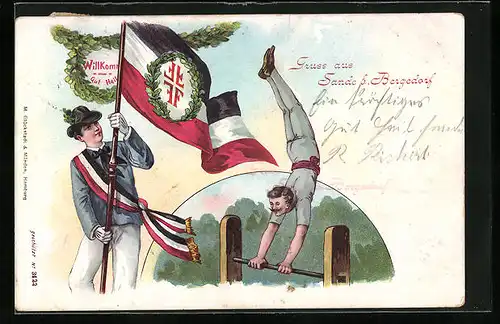 Willkomm
Gut Heil
Gruss aus
Sande b. Bergedorf
Ein kräftiges
Gut Heil
R.
M. Glückstadt & Münden, Hamburg
geschützt Nº 3822